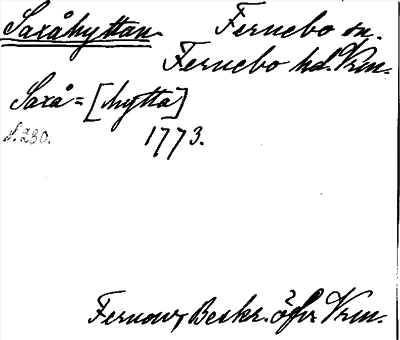 Saxåhyttan. Fernebo sn.
Fernebo hd. Vrm.
Saxå = [hytta]
s. 230. 1773.
Fernow, Beskr. öfvr Vrm.